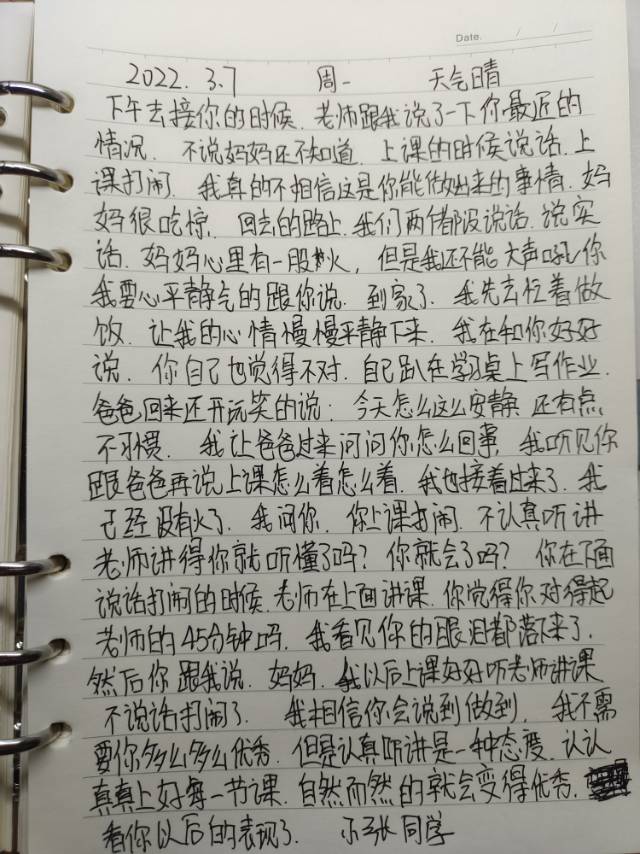 Date.    /    /
2022.3.7 周一 天气晴
下午去接你的时候.老师跟我说了一下你最近的
情况. 不说妈妈还不知道.上课的时候说话.上
课打闹. 我真的不相信这是你能做出来的事情.妈
妈很吃惊. 回去的路上.我们两个都没说话.说实
话.妈妈心里有一股火,但是我还不能大声吼你
我要心平静气的跟你说.到家了.我先去忙着做
饭.让我的心情慢慢平静下来.我在和你好好
说.你自己也觉得不对.自己趴在学习桌上写作业.
爸爸回来还开玩笑的说:今天怎么这么安静 还有点
不习惯. 我让爸爸过来问问你怎么回事,我听见你
跟爸爸再说上课怎么着怎么着.我也接着过来了.我
已经没有火了.我问你.你上课打闹.不认真听讲
老师讲得你就听懂了吗?你就会了吗? 你在下面
说话打闹的时候.老师在上面讲课.你觉得你对得起
老师的45分钟吗.我看见你的眼泪都落下来了.
然后你跟我说.妈妈.我以后上课好好听老师讲课
不说话打闹了. 我相信你会说到做到.我不需
要你多么多么优秀.但是认真听讲是一种态度.认认
真真上好每一节课.自然而然的就会变得优秀.
看你以后的表现了. 小张同学